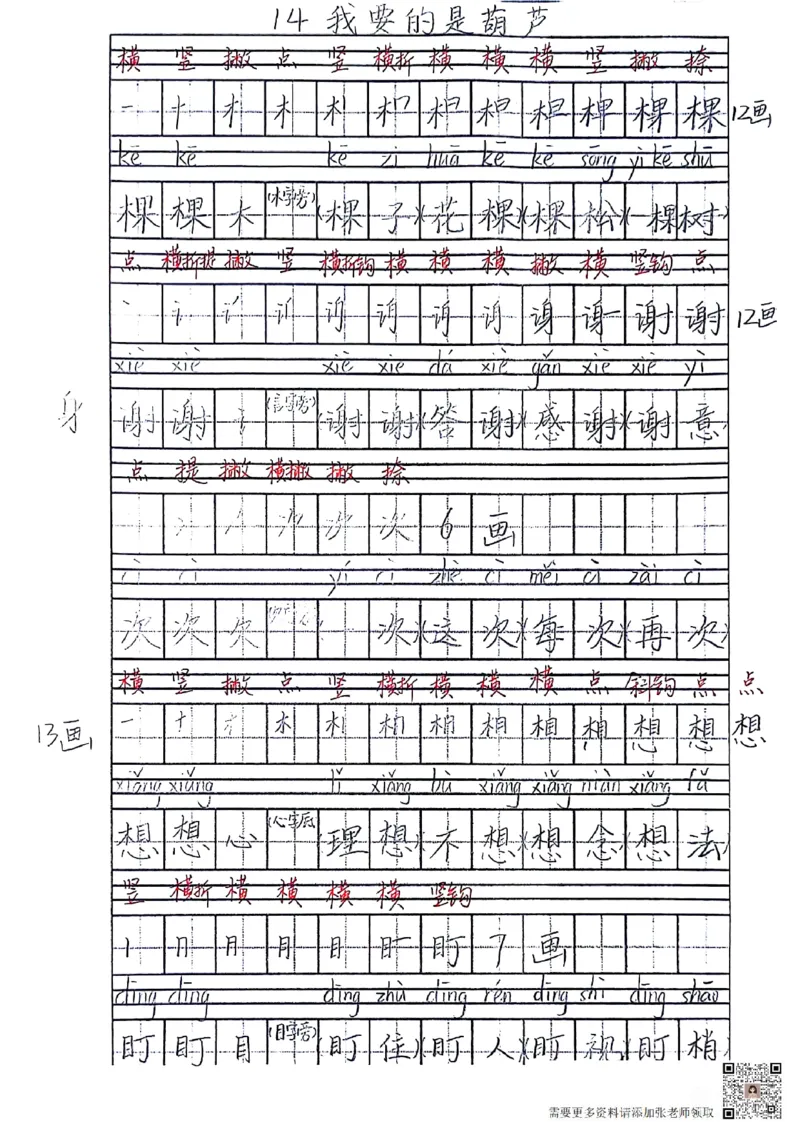 14 我要的是葫芦
横 竖 撇 点 竖 横折 横 横 横 竖 撇 捺
一 十 才 木 棵 12画
kē kē kē zi huā kē kē sōng yì kē shū
棵 棵 木 (木字旁) (棵 子)(花 棵)(棵 松)(一棵树)
点 横折提 撇 竖 横折钩 横 横 横 撇 横 竖钩 点
谢 谢 12画
xiè xiè xiè xie dá xiè gǎn xiè xiè yì
身 谢 谢 讠 (言字旁) (谢 谢)(答 谢)(感 谢)(谢 意)
点 提 撇 横撇 撇 捺
次 6 画
yí cì zhè cì měi cì zài cì
次 次 欠 一 次)(这 次)(每 次)(再 次)
横 竖 撇 点 竖 横折 横 横 横 点 斜钩 点 点
13画 一 十 才 木 相 相 想 想 想
xiǎng xiǎng lǐ xiǎng bù xiǎng xiǎng niàn xiǎng fǎ
想 想 心 (心字底) (理 想)(不 想)(想 念)(想 法)
竖 横折 横 横 横 横 竖钩
丨 冂 月 月 目 盯 盯 7 画
dīng dīng dīng zhù dīng rén dīng shì dīng shāo
盯 盯 目 (目字旁) (盯 住)(盯 人)(盯 视)(盯 梢)
需要更多资料请添加张老师领取